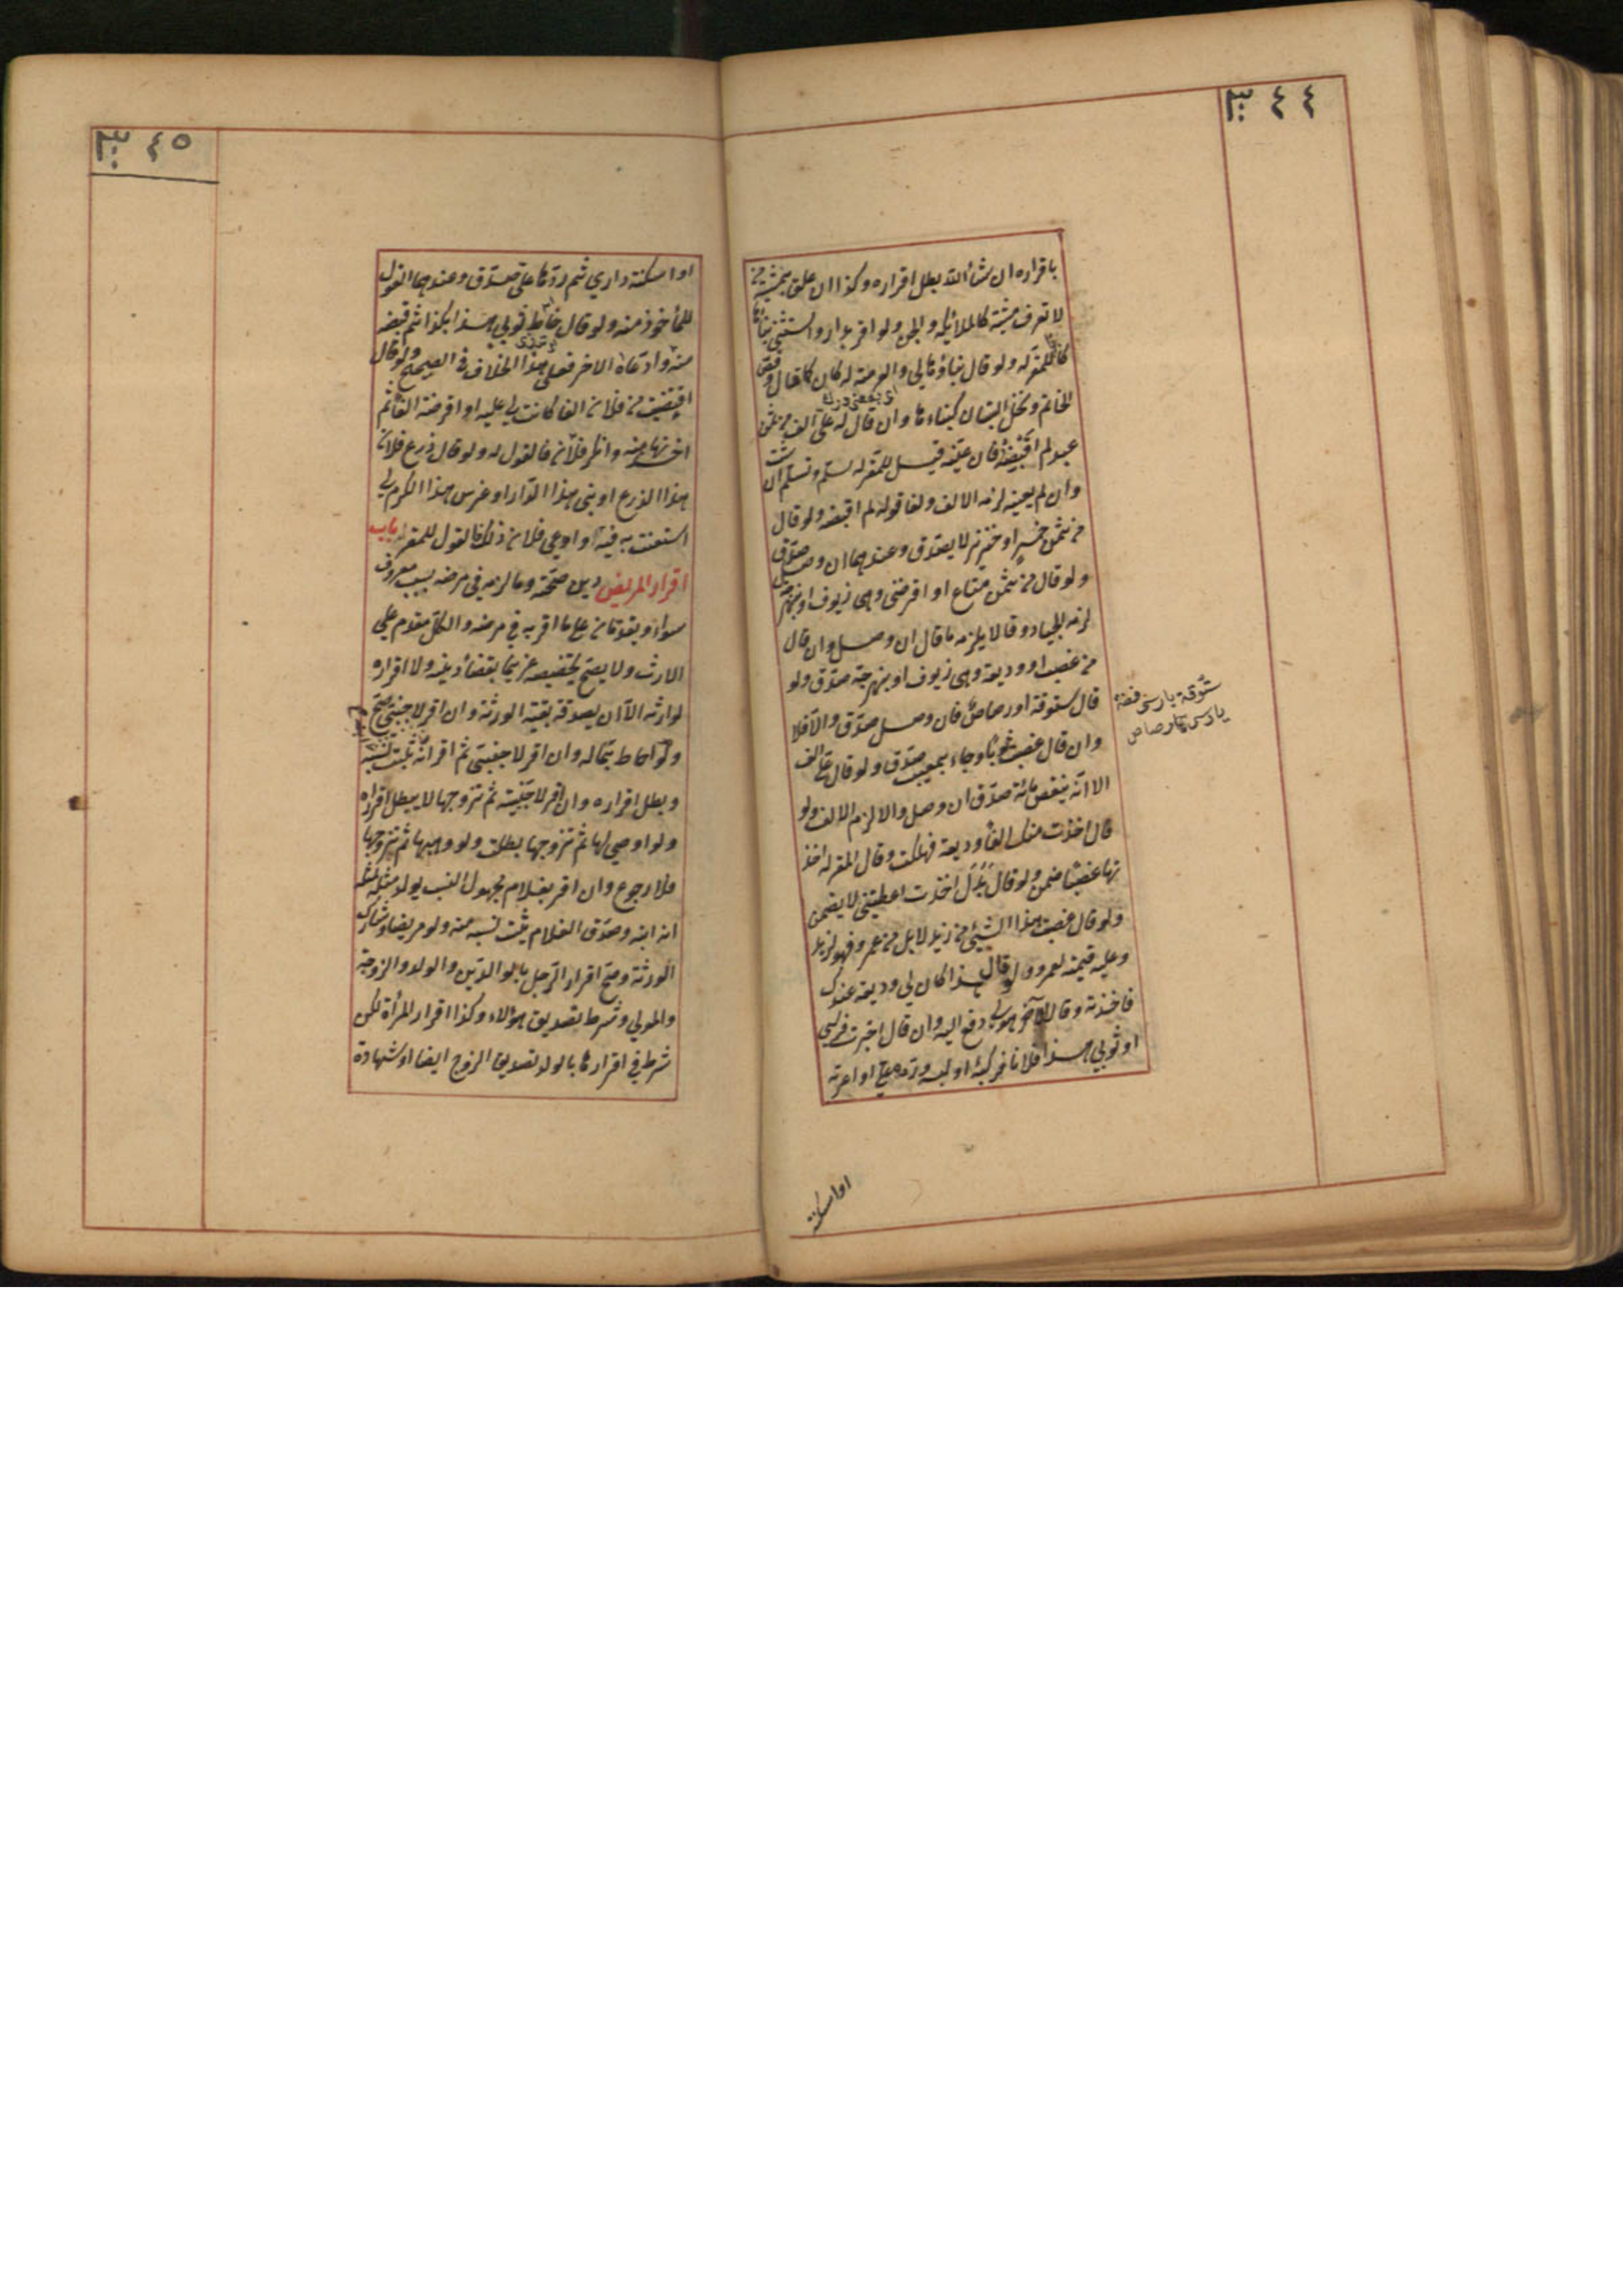 ٣٤٤
باقراره ان شاء الله بطل اقراره وكذا ان علق بمشية من
لا تعرف مشيته كالملائكة والجن ولو اقر بدار واستثنى بنائها
كانا للمقر له ولو قال بناؤها لي والعرصة له كان كما قال وفص
الخاتم ونخل البستان كبناءها وان قال له علي الف من ثمن
عبد لم اقبضه فان عينه قيل للمقر له سلم وتسلم ان شئت
وان لم يعينه لزمه الالف ولغا قوله لم اقبضه ولو قال
من ثمن خمر او خنزير لا يصدق وعندهما ان وصل صدق
ولو قال من ثمن متاع او اقرضني وهي زيوف او نبهرجة
لزمه الجياد وقالا يلزمه ما قال ان وصل وان قال
من غصب او وديعة وهي زيوف او بنهرجة صدق ولو
قال ستوقة او رصاص فان وصل صدق والا فلا
وان قال غصبت ثوبا وجاء بمعيب صدق ولو قال علي الف
الا انه ينقص مائة صدق ان وصل والا لزم الالف ولو
قال اخذت منك الفا وديعة فهلكت وقال المقر له اخذ
تها غصبا ضمن ولو قال بدل اخذت اعطيتني لا يضمن
ولو قال غصبت هذا الشيئ من زيد لا بل من عمرو فهو لزيد
وعليه قيمته لعمرو ولو قال هذا كان لي وديعة عندك
فاخذته وقال الآخر هو لي دفع اليه وان قال اجرت فرسي
او ثوبي هذا فلانا فركبه او لبسه ورده علي او اعرته
ستوقة يارسى فضة
يارسى رصاص
او اسكنته
٣٤٥
او اسكنته داري ثم ردها علي صدق وعندهما القول
للمأخوذ منه ولو قال خاط ثوبي هذا بكذا ثم قبضه
منه وادعاه الاخر فعلى هذا الخلاف في الصحيح ولو قال
اقتضيت من فلان الفا كانت لي عليه او اقرضته الفا ثم
اخذتها منه وانكر فلان فالقول له ولو قال زرع فلان
هذا الزرع او بنى هذا الدار او غرس هذا الكرم لي
استعنت به فيه وادعى فلان ذلك فالقول للمقر باب
اقرار المريض دين صحته وما لزمه في مرضه بسبب معروف
سواء ويقدمان على ما اقر به في مرضه والكل مقدم على
الارث ولا يصح تخصيصه غريما بقضاء دينه ولا اقراره
لوارثه الا ان يصدقه بقية الورثة وان اقر لاجنبي صح
ولو احاط بماله وان اقر لاجنبي ثم اقر انه ابنه ثبت نسبه
وبطل اقراره وان اقر لاجنبية ثم تزوجها لا يبطل اقراره
ولو اوصى لها ثم تزوجها بطلت ولو وهبها ثم تزوجها
فلا رجوع وان اقر بغلام مجهول النسب يولد مثله لمثله
انه ابنه وصدق الغلام يثبت نسبه منه ولو مريضا وشارك
الورثة وصح اقرار الرجل بالوالدين والولد والزوجة
والمولى وشرط تصديق هؤلاء وكذا اقرار المرأة لكن
شرط في اقرارها بالولد تصديق الزوج ايضا او شهادة